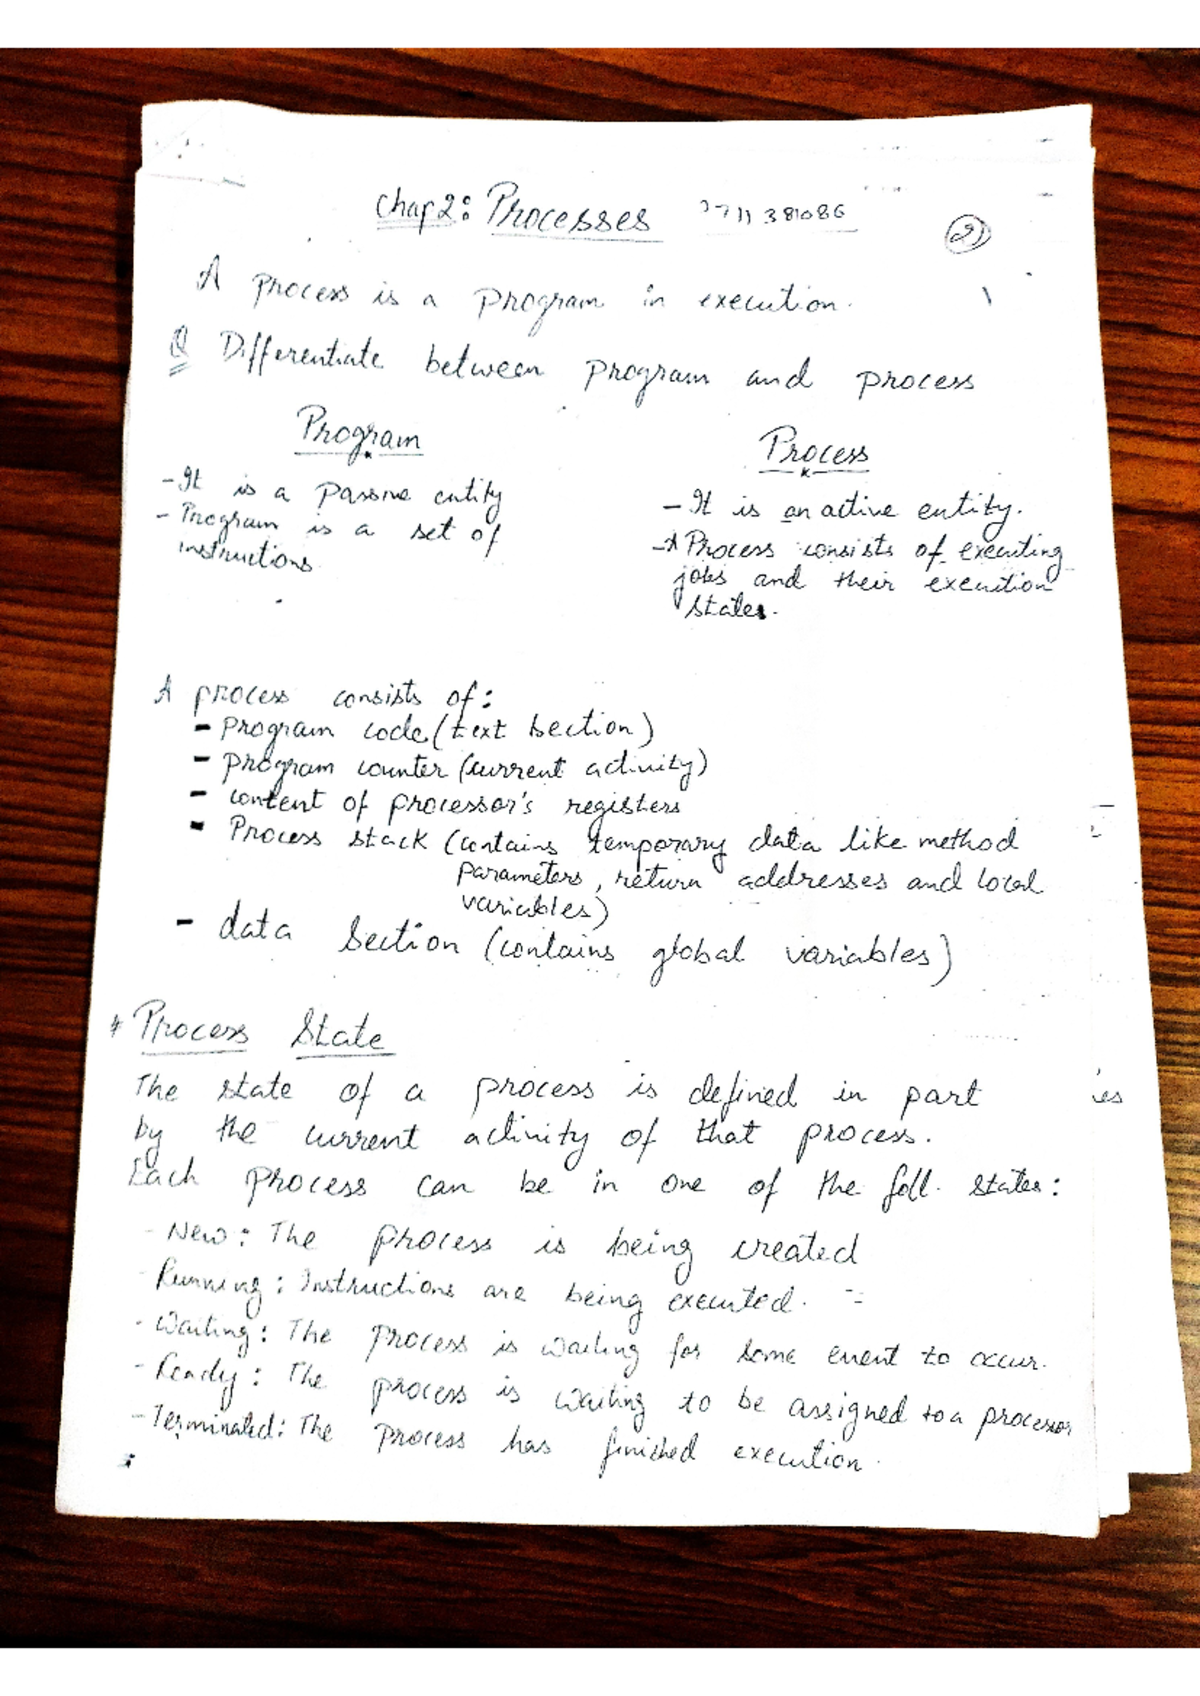 Chap 2: Processes
2
A process is a program in execution.
Q Differentiate between program and process
Program
- It is a passive entity
- Program is a set of
instructions
Process
- It is an active entity.
- A Process consists of executing
jobs and their execution
states.
A process consists of:
- program code (text section)
- program counter (current activity)
- content of processor's registers
- Process stack (contains temporary data like method
parameters, return addresses and local
variables)
- data section (contains global variables)
* Process State
The state of a process is defined in part
by the current activity of that process.
Each process can be in one of the foll. states:
- New: The process is being created
- Running: Instructions are being executed.
- Waiting: The process is waiting for some event to occur.
- Ready: The process is waiting to be assigned to a processor
- Terminated: The process has finished execution.